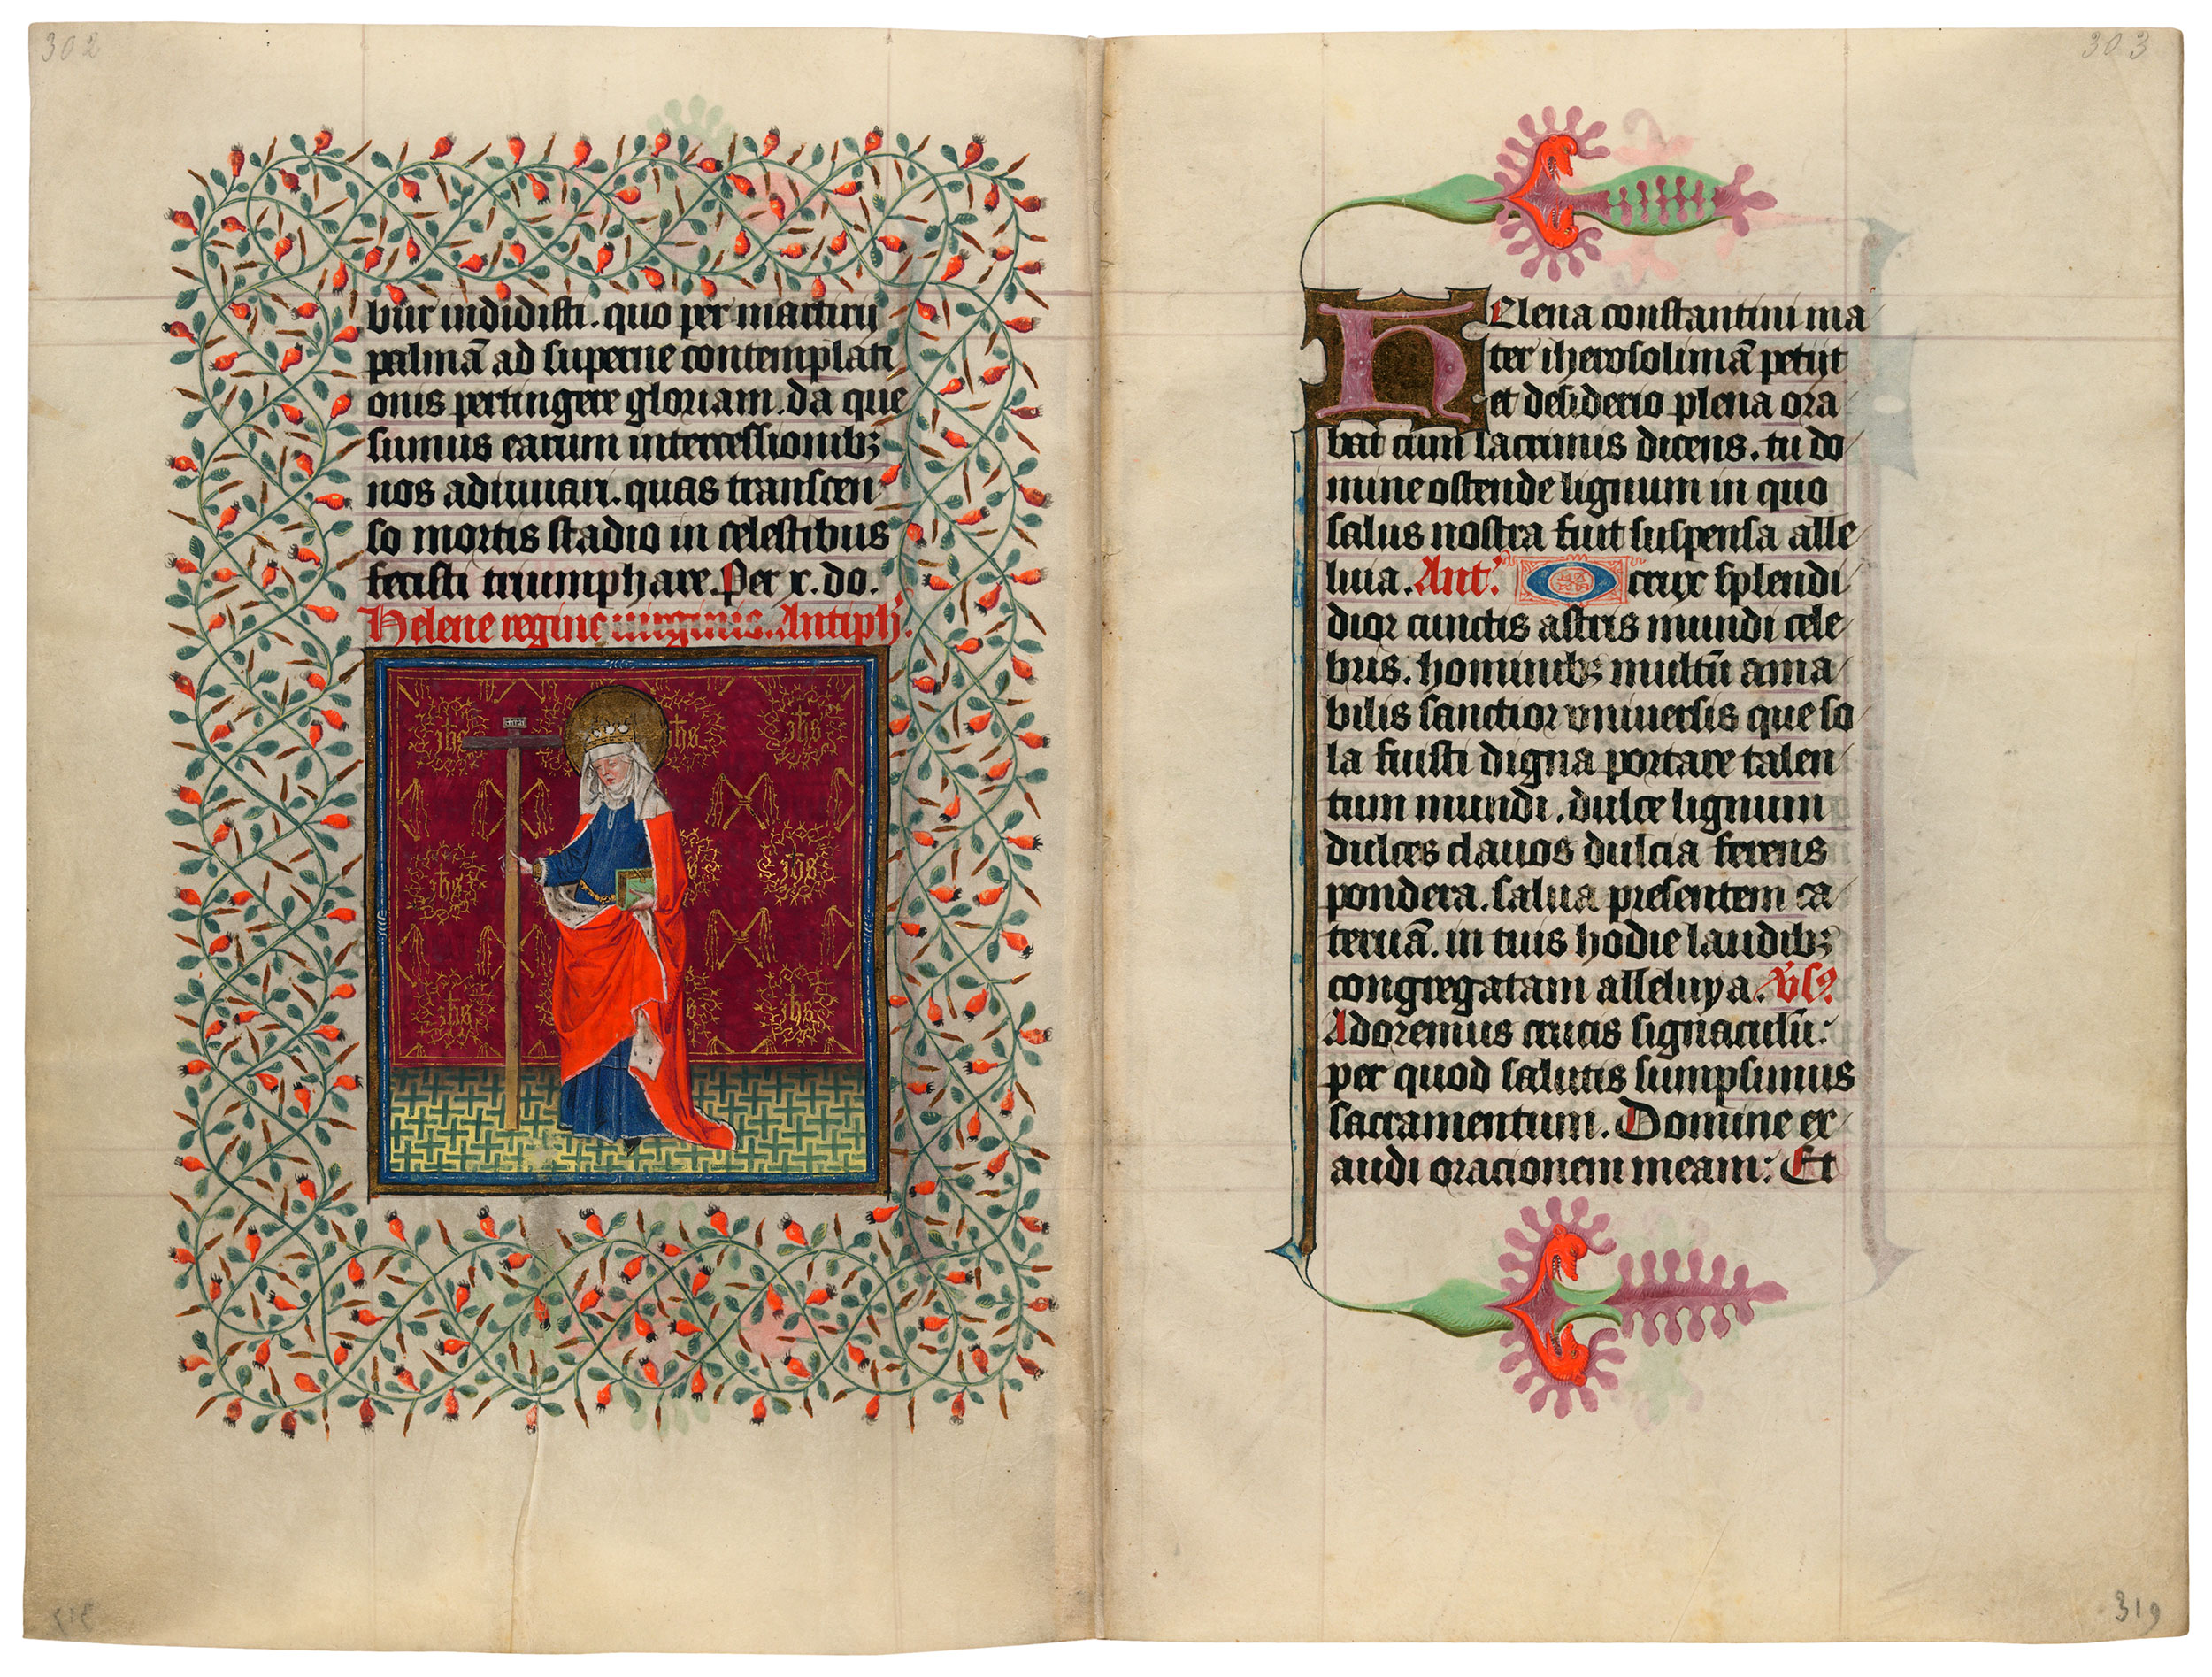 302
bus indidisti. quo per martirij
palmā ad superne contemplati
onis pertingere gloriam. da que
sumus earum intercessionibꝫ
nos adiuuari. quas transcen
so mortis stadio in celestibus
fecisti triumphare. Per x. do.
Helene regine uirginis. Antiph'.
ihs ihs ihs
ihs ihs
ihs ihs
303
HElena constantini ma
ter iherosolimā petijt
et desiderio plena ora
bat cum lacrimis dicens. tu do
mine ostende lignum in quo
salus nostra fuit suspensa alle
luia. Ant'. O crux splendi
dior cunctis astris mundi cele
bris. hominibꝫ multū ama
bilis sanctior vniuersis que so
la fuisti digna portare talen
tum mundi. dulce lignum
dulces clauos dulcia ferens
pondera. salua presentem ca
teruā. in tuis hodie laudibꝫ
congregatam alleluya. v̄s9.
Adoremus crucis signaculū:
per quod salutis sumpsimus
sacramentum. Domine ex
audi orationem meam: Et
319